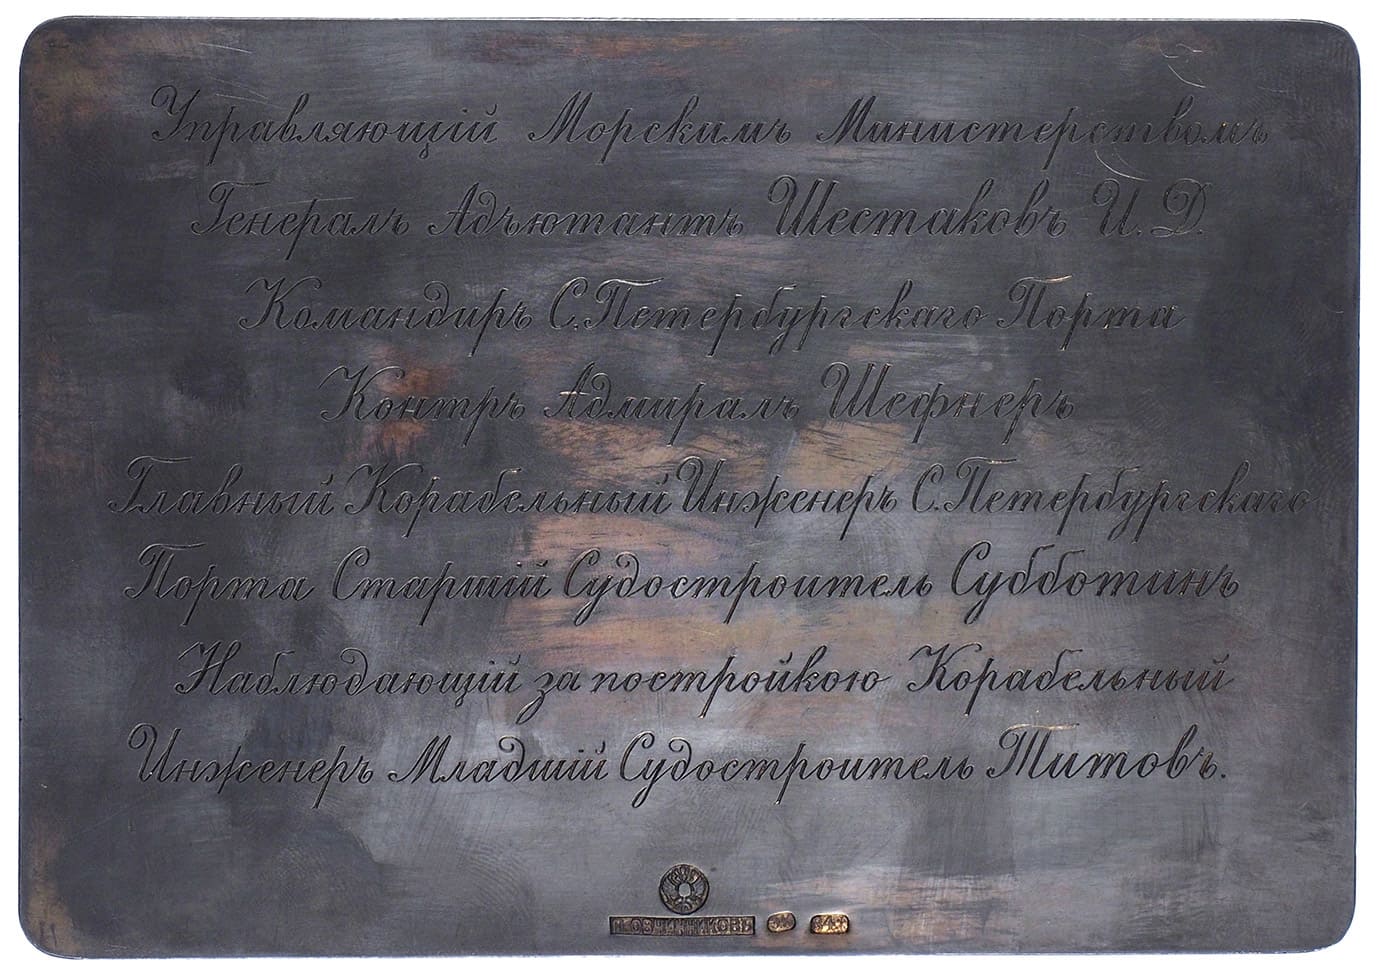 Управляющій Морскимъ Министерствомъ
Генералъ Адъютантъ Шестаковъ И. Д.
Командиръ С. Петербургскаго Порта
Контръ Адмиралъ Шефнеръ
Главный Корабельный Инженеръ С. Петербургскаго
Порта Старшій Судостроитель Субботинъ
Наблюдающій за постройкою Корабельный
Инженеръ Младшій Судостроитель Титовъ.
П. ОВЧИННИКОВЪ 84